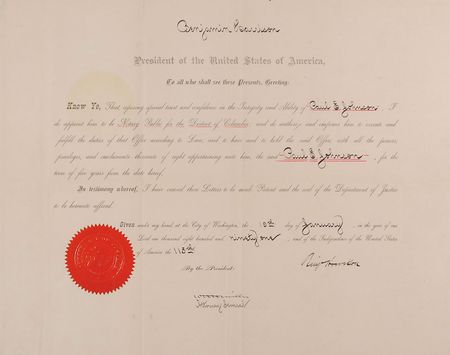 Benjamin Harrison
President of the United States of America,
To all who shall see these Presents, Greeting:
Know Ye, That reposing special trust and confidence in the Integrity and Ability of Emil E. Johnson, I
do appoint him to be Notary Public for the District of Columbia, and do authorize and empower him to execute and
fulfill the duties of that Office according to Law, and to have and to hold the said Office with all the powers,
privileges, and emoluments thereunto of right appertaining unto him, the said Emil E. Johnson, for the
term of five years from the date hereof.
In testimony whereof, I have caused these Letters to be made Patent and the seal of the Department of Justice
to be hereunto affixed.
Given under my hand, at the City of Washington, the day of January, in the year of our
Lord one thousand eight hundred and ninety one, and of the Independence of the United States
of America the 115th
Benj Harrison
By the President:
Attorney General